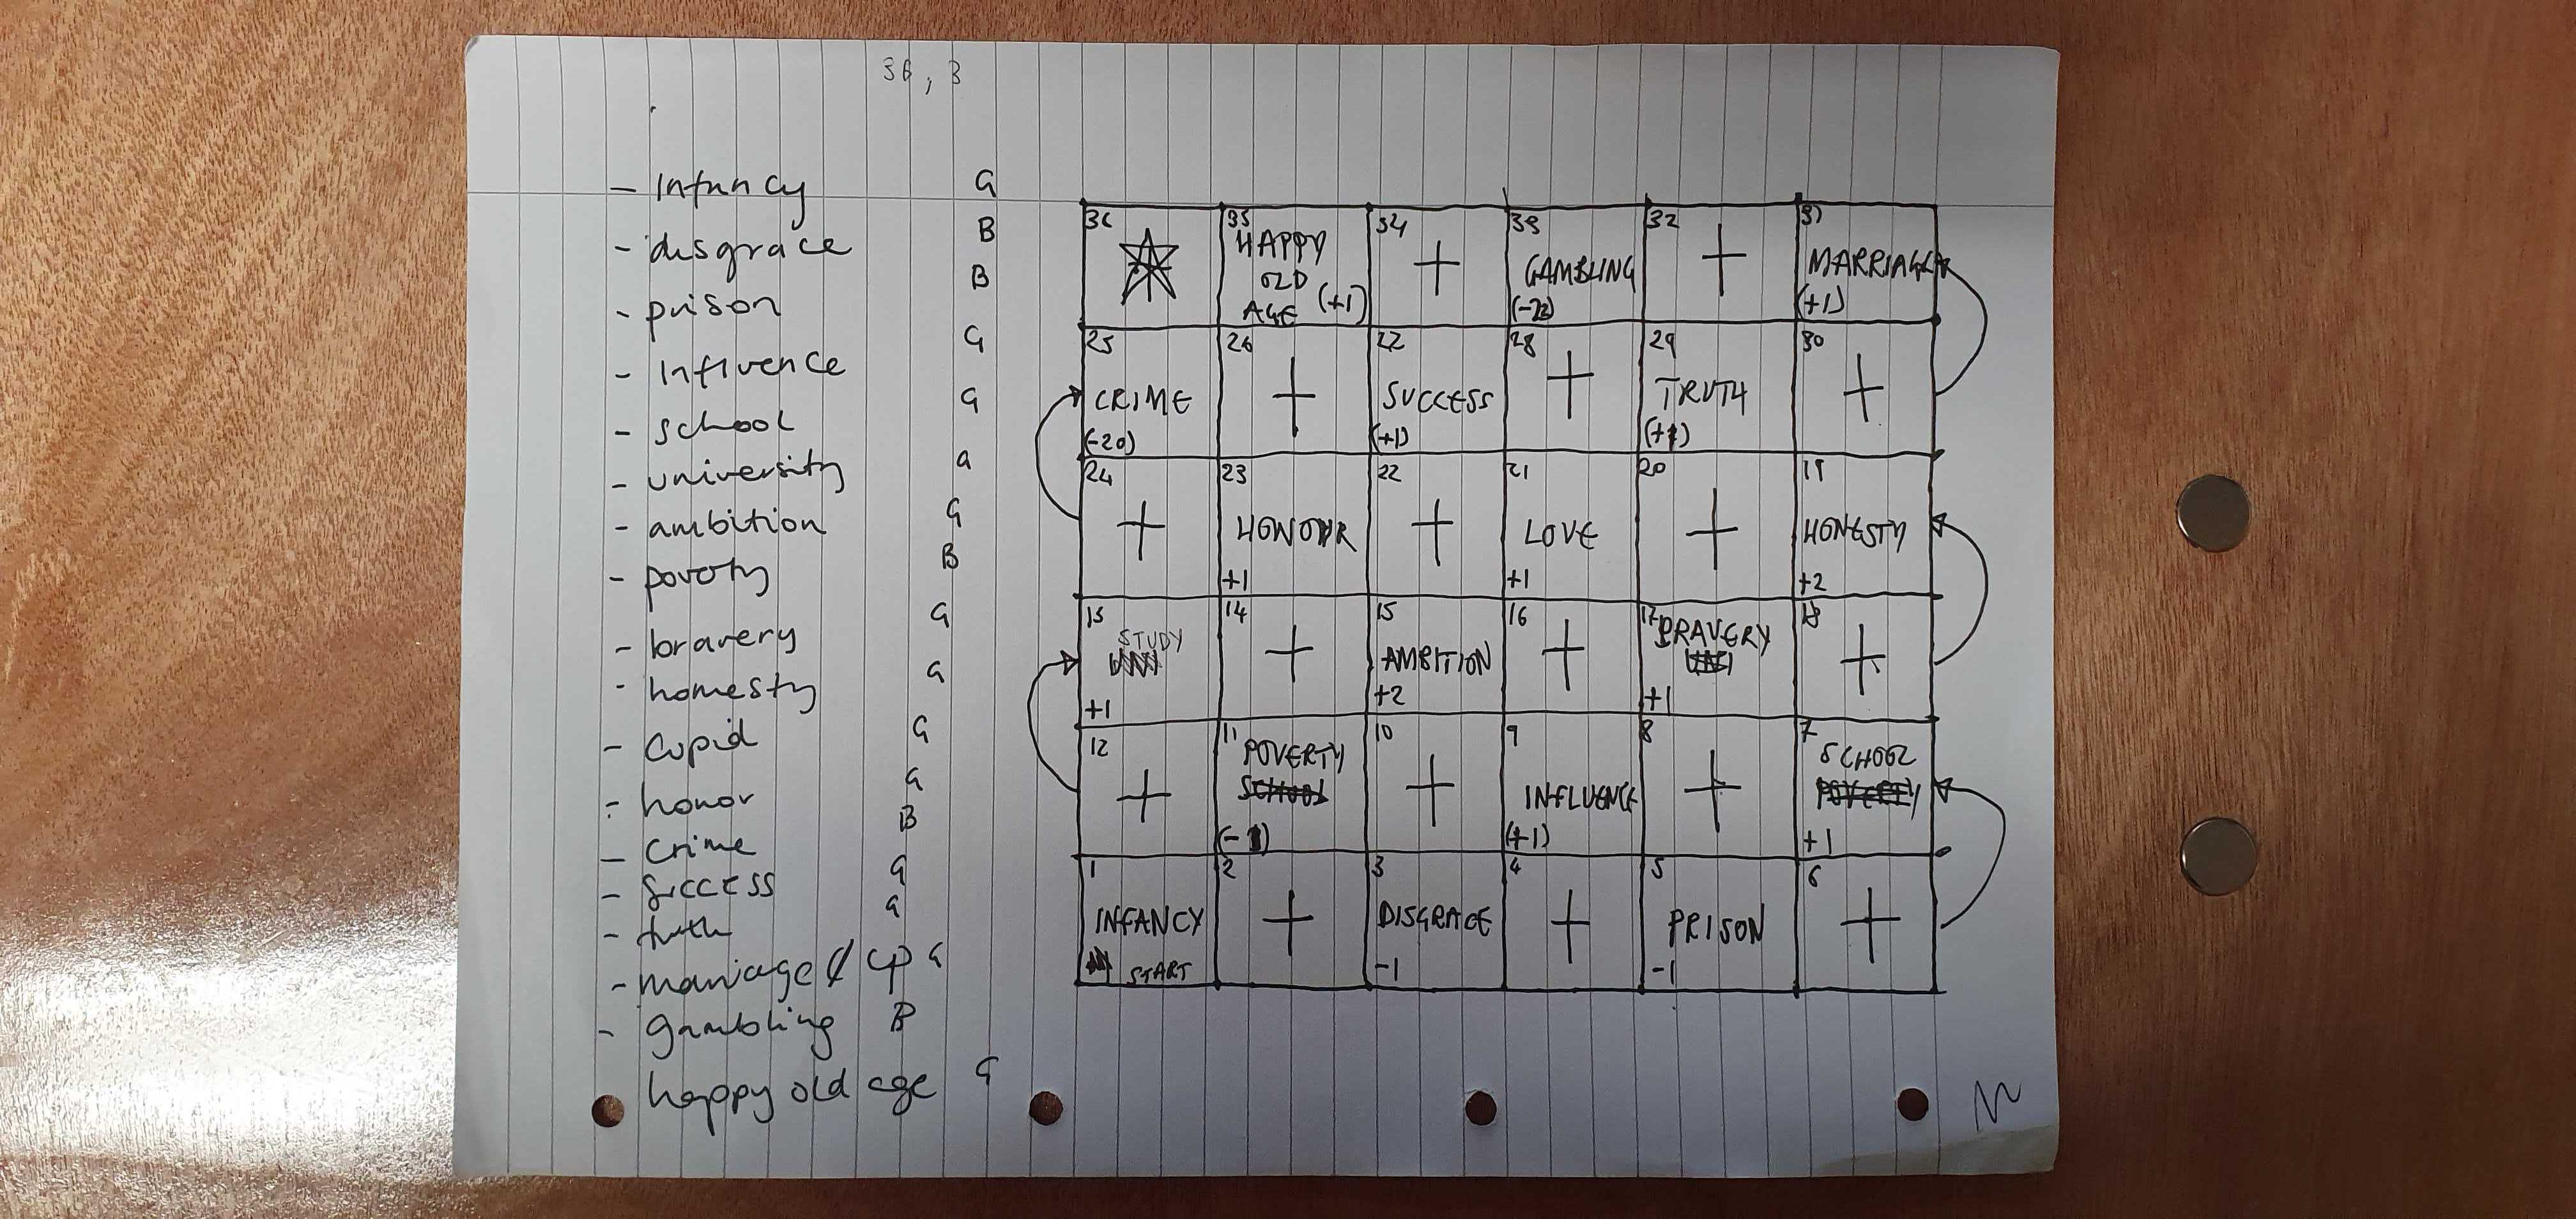 36, 3
- Infancy G
- disgrace B
- prison B
- Influence G
- school G
- university G
- ambition G
- poverty B
- bravery G
- homesty G
- Cupid G
- honor G
- Crime B
- Success G
- truth G
- marriage & cp G
- gambling B
- happy old age G
36 35 34 33 32 31
HAPPY OLD AGE (+1)
GAMBLING
MARRIAGE (+1)
25 26 27 28 29 30
CRIME (-20)
SUCCESS (+1)
TRUTH (+1)
24 23 22 21 20 19
HONOUR +1
LOVE +1
HONESTY +2
13 14 15 16 17 18
STUDY +1
AMBITION +2
BRAVERY +1
12 11 10 9 8 7
POVERTY (-1)
INFLUENCE (+1)
SCHOOL +1
1 2 3 4 5 6
INFANCY START
DISGRACE -1
PRISON -1